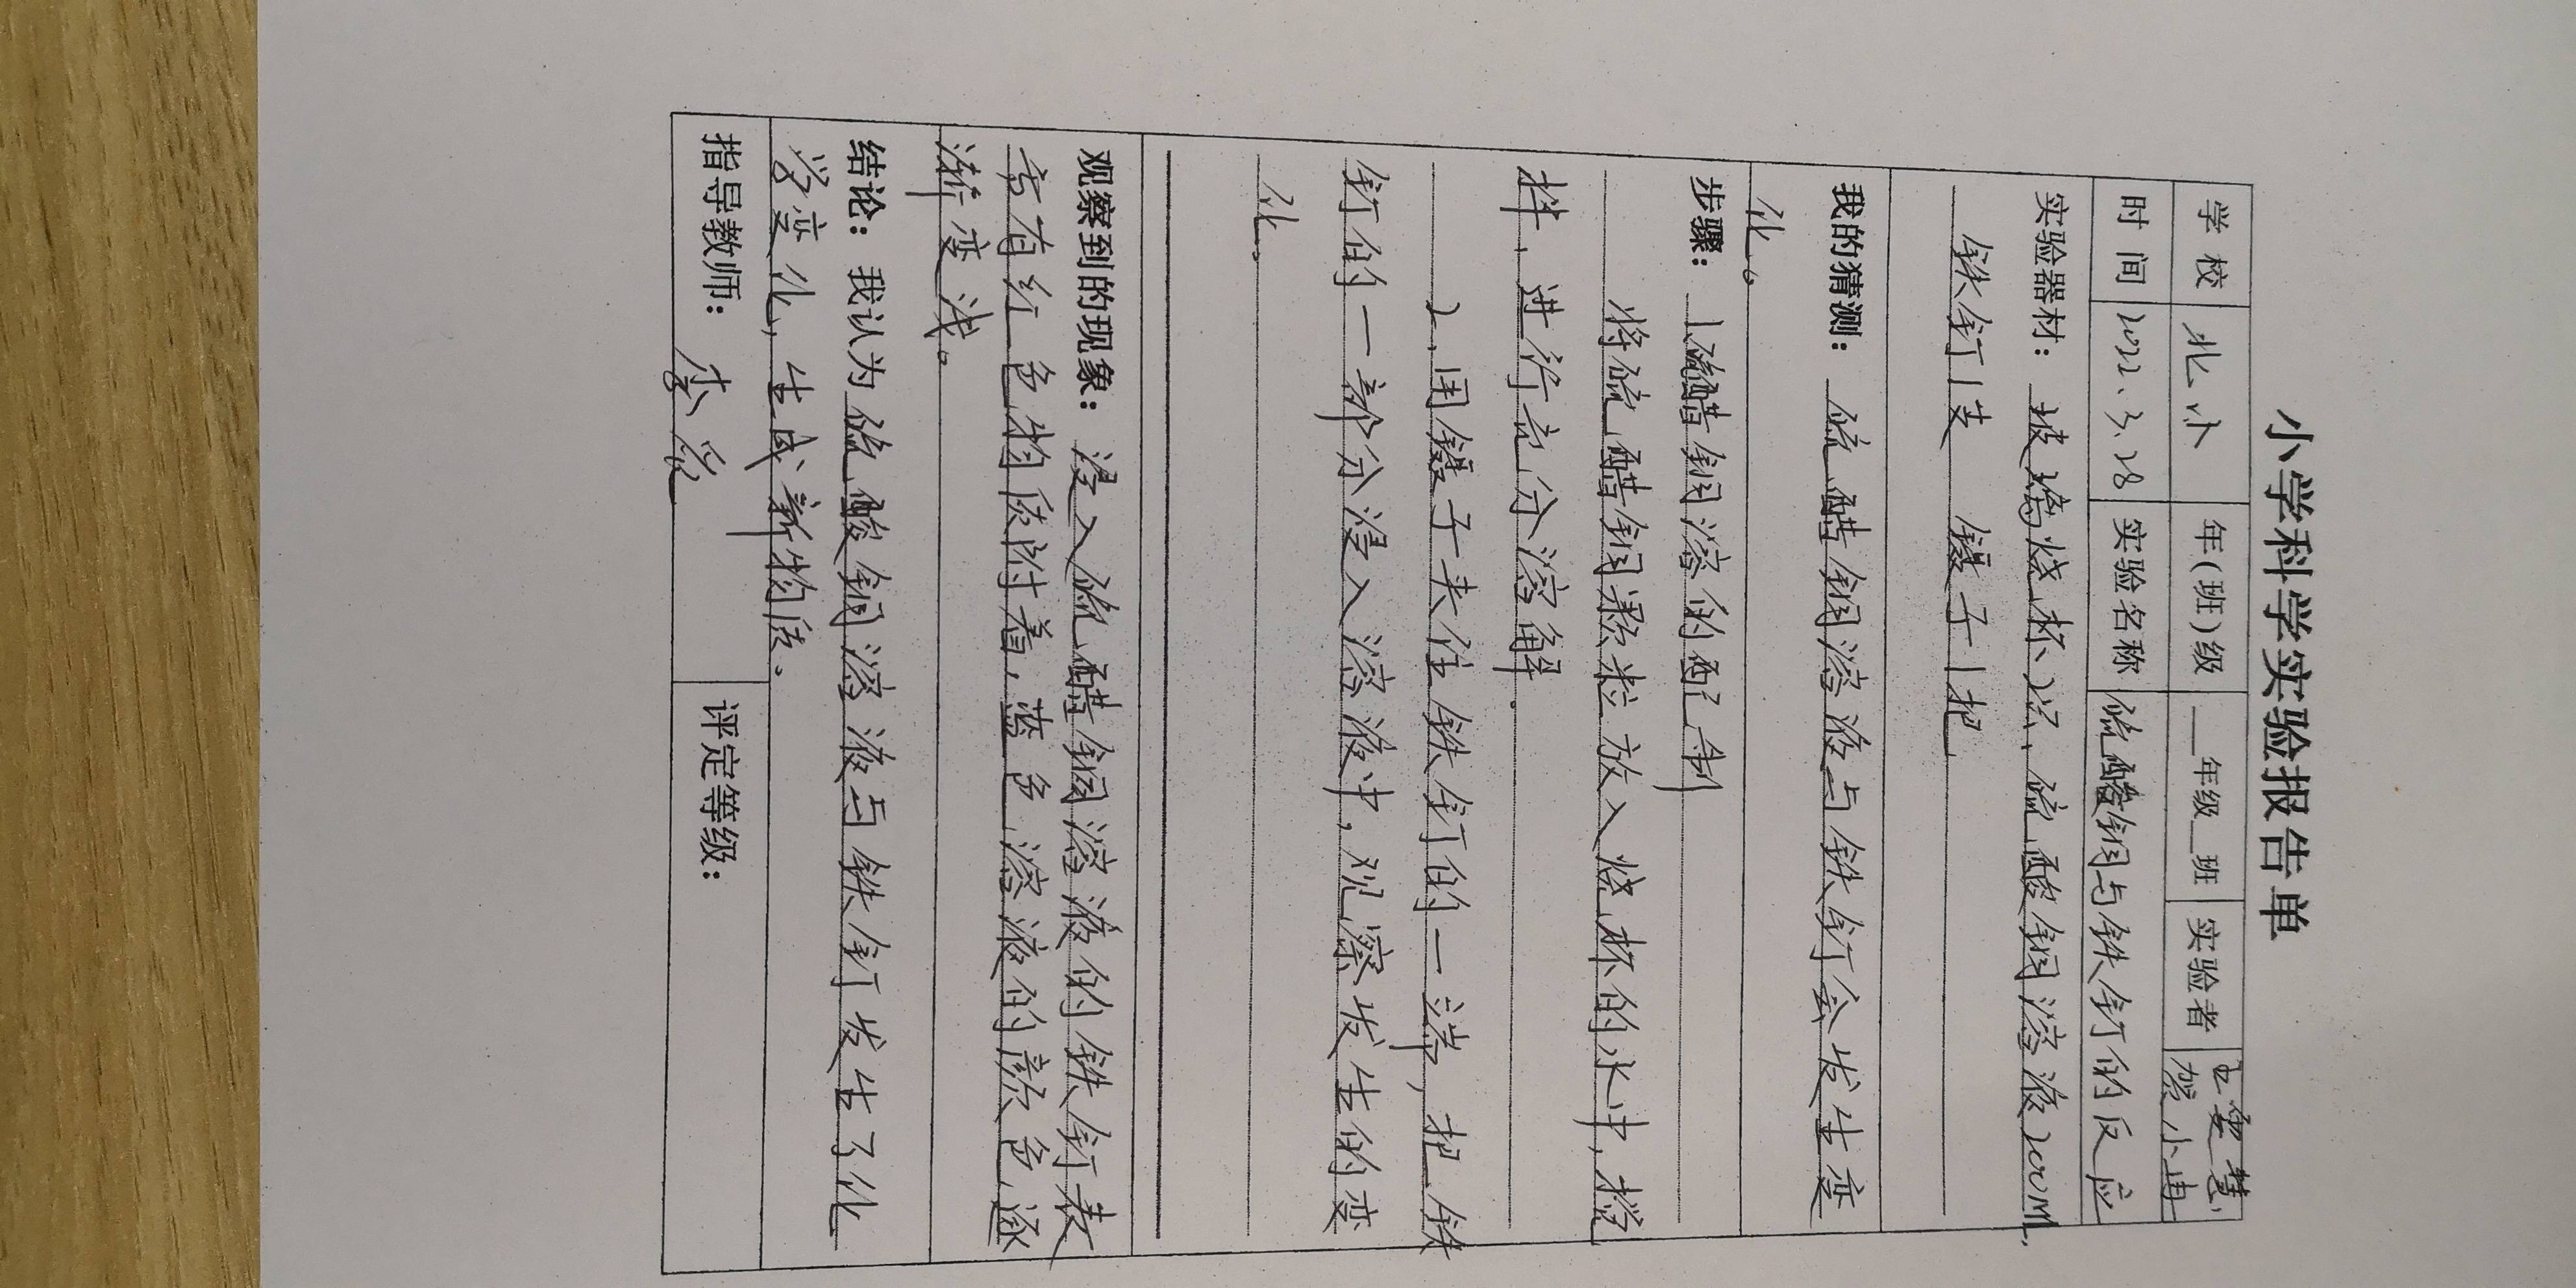 小学科学实验报告单
学 校 北小 年(班)级 __年级__班 实验者 王雯慧
贺小冉
时 间 2022、3、28 实验名称 硫酸铜与铁钉的反应
实验器材: 玻璃烧杯、2只、硫酸铜溶液200ml、
铁钉1支 镊子1把
我的猜测: 硫醋铜溶液与铁钉会发生变
化。
步骤: 1、硫醋铜溶的配制
将硫醋铜颗粒放入烧杯的水中,搅
拌,进行充分溶解.
2、用镊子夹住铁钉的一端,把铁
钉的一部分浸入溶液中,观察发生的变
化.
观察到的现象: 浸入硫醋铜溶液的铁钉表
面有红色物质附着,蓝色溶液的颜色逐
渐变浅。
结论: 我认为硫酸铜溶液与铁钉发生了化
学变化,生成新物质.
指导教师: 评定等级: